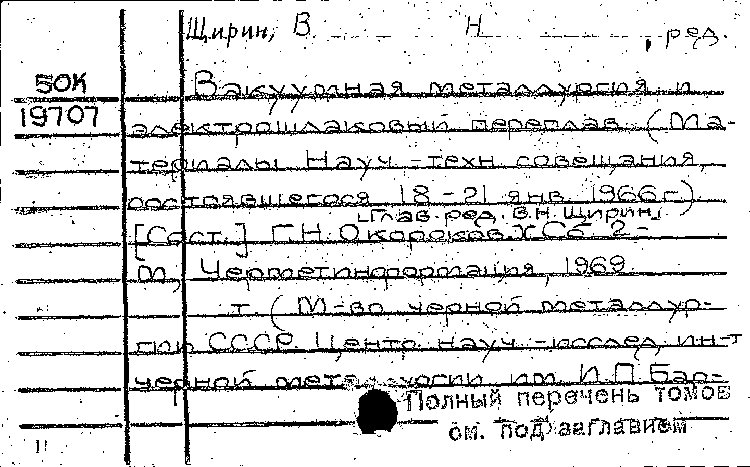 Щирин, В. Н. , ред.
50К
19707
Вакуумная металлургия и
электрошлаковый переплав. (Ма-
териалы Науч.-техн. совещания,
состоявшегося 18-21 янв. 1966 г.)
Глав. ред. В.Н. Щирин,
[Сост.] Г.Н. Окороков. Сб. 2-
М., Черметинформация, 1969.
т. (М-во черной металлур-
гии СССР. Центр. науч.-исслед. ин-т
черной металлургии им. И.П. Бар-
Полный перечень томов
см. под заглавием
11